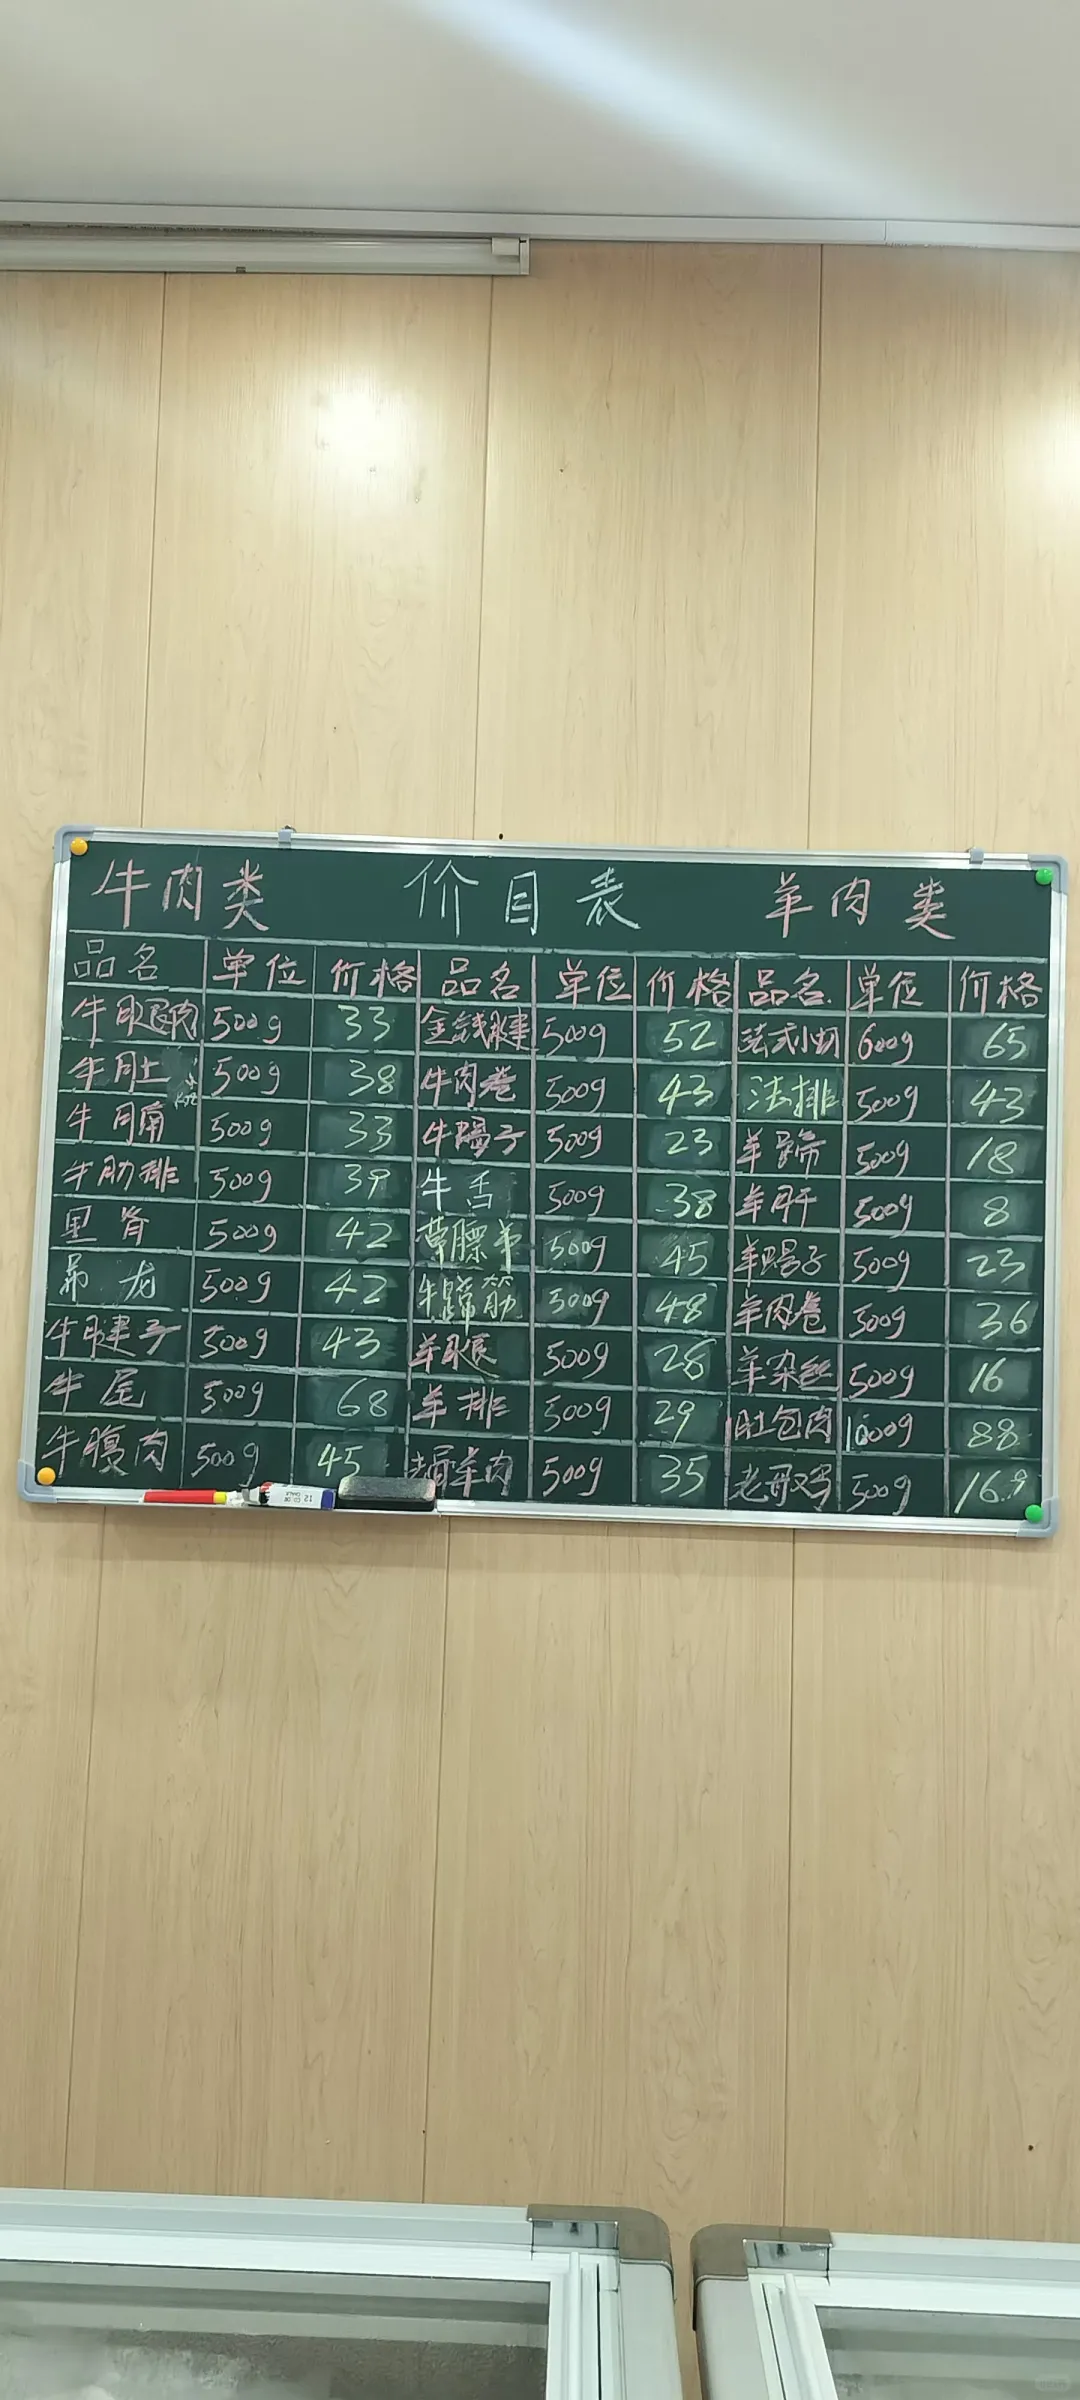 牛肉类 价目表 羊肉类
品名 单位 价格 品名 单位 价格 品名 单位 价格
牛腿肉 500g 33 金錢腱 500g 52 法式小切 600g 65
牛肚 500g 38 牛肉卷 500g 43 法排 500g 43
牛腩 500g 33 牛蝎子 500g 23 羊蹄 500g 18
牛肋排 500g 39 牛舌 500g 38 羊肝 500g 8
里脊 500g 42 500g 45 羊蝎子 500g 23
吊龙 500g 42 牛蹄筋 500g 48 羊肉卷 500g 36
牛腱子 500g 43 羊腿 500g 28 羊杂丝 500g 16
牛尾 500g 68 羊排 500g 29 肚包肉 1000g 88
牛腹肉 500g 45 羊肉 500g 35 500g 16.9